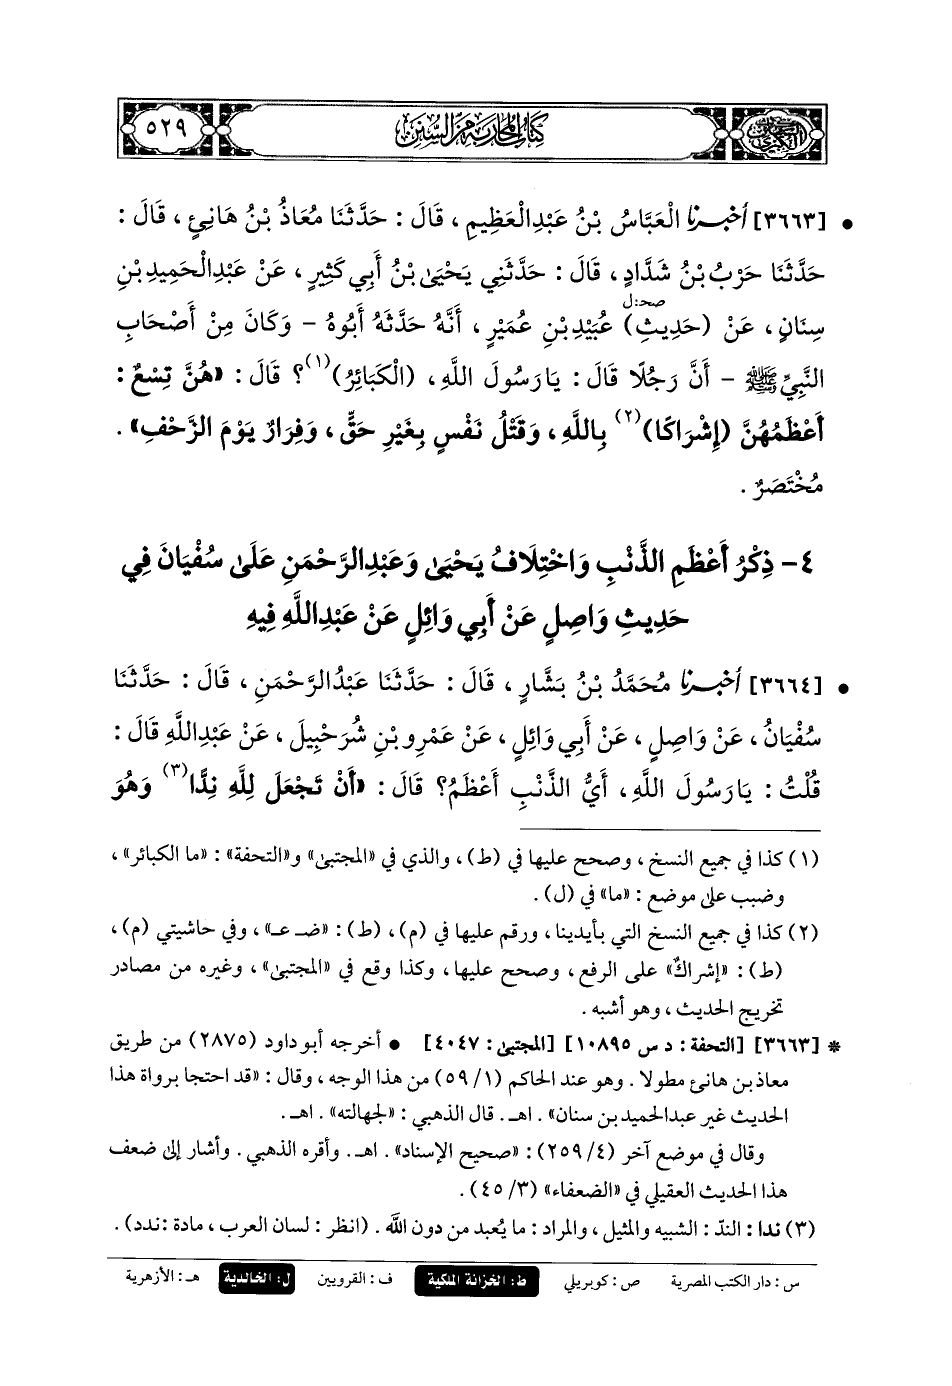 كتاب المحاربة من السنن
٥٢٩
• [٣٦٦٣] أخبرنا الْعَبَّاسُ بْنُ عَبْدِالْعَظِيمِ ، قَالَ : حَدَّثَنَا مُعَاذُ بْنُ هَانِئٍ ، قَالَ :
حَدَّثَنَا حَرْبُ بْنُ شَدَّادٍ ، قَالَ : حَدَّثَنِي يَحْيَىٰ بْنُ أَبِي كَثِيرٍ ، عَنْ عَبْدِالْحَمِيدِ بْنِ
صحـ: ل
سِنَانٍ ، عَنْ (حَدِيثِ) عُبَيْدِ بْنِ عُمَيْرٍ ، أَنَّهُ حَدَّثَهُ أَبُوهُ - وَكَانَ مِنْ أَصْحَابِ
النَّبِيِّ ﷺ - أَنَّ رَجُلًا قَالَ : يَا رَسُولَ اللَّهِ ، (الْكَبَائِرُ)(١)؟ قَالَ : «هُنَّ تِسْعٌ :
أَعْظَمُهُنَّ (إِشْرَاكًا)(٢) بِاللَّهِ ، وَقَتْلُ نَفْسٍ بِغَيْرِ حَقٍّ ، وَفِرَارٌ يَوْمَ الزَّحْفِ» .
مُخْتَصَرٌ .
٤- ذِكْرُ أَعْظَمِ الذَّنْبِ وَاخْتِلَافُ يَحْيَىٰ وَعَبْدِالرَّحْمَنِ عَلَىٰ سُفْيَانَ فِي
حَدِيثِ وَاصِلٍ عَنْ أَبِي وَائِلٍ عَنْ عَبْدِاللَّهِ فِيهِ
• [٣٦٦٤] أخبرنا مُحَمَّدُ بْنُ بَشَّارٍ ، قَالَ : حَدَّثَنَا عَبْدُالرَّحْمَنِ ، قَالَ : حَدَّثَنَا
سُفْيَانُ ، عَنْ وَاصِلٍ ، عَنْ أَبِي وَائِلٍ ، عَنْ عَمْرِو بْنِ شُرَحْبِيلَ ، عَنْ عَبْدِاللَّهِ قَالَ :
قُلْتُ : يَا رَسُولَ اللَّهِ ، أَيُّ الذَّنْبِ أَعْظَمُ؟ قَالَ : «أَنْ تَجْعَلَ لِلَّهِ نِدًّا(٣) وَهُوَ
(١) كذا في جميع النسخ ، وصحح عليها في (ط) ، والذي في «المجتبىٰ» و«التحفة» : «ما الكبائر» ،
وضبب على موضع : «ما» في (ل) .
(٢) كذا في جميع النسخ التي بأيدينا ، ورقم عليها في (م) ، (ط) : «ضـ عـ» ، وفي حاشيتي (م) ،
(ط) : «إشراكٌ» على الرفع ، وصحح عليها ، وكذا وقع في «المجتبىٰ» ، وغيره من مصادر
تخريج الحديث ، وهو أشبه .
* [٣٦٦٣] [التحفة : د س ١٠٨٩٥] [المجتبىٰ : ٤٠٤٧] • أخرجه أبو داود (٢٨٧٥) من طريق
معاذ بن هانئ مطولا . وهو عند الحاكم (١/ ٥٩) من هذا الوجه ، وقال : «قد احتجا برواة هذا
الحديث غير عبدالحميد بن سنان» . اهـ . قال الذهبي : «لجهالته» . اهـ .
وقال في موضع آخر (٤/ ٢٥٩) : «صحيح الإسناد» . اهـ . وأقره الذهبي . وأشار إلى ضعف
هذا الحديث العقيلي في «الضعفاء» (٣/ ٤٥) .
(٣) ندا : الندّ : الشبيه والمثيل ، والمراد : ما يُعبد من دون الله . (انظر : لسان العرب ، مادة :ندد) .
س : دار الكتب المصرية ص : كوبريلي ط : الخزانة الملكية ف : القرويين ل : الخالدية هـ : الأزهرية